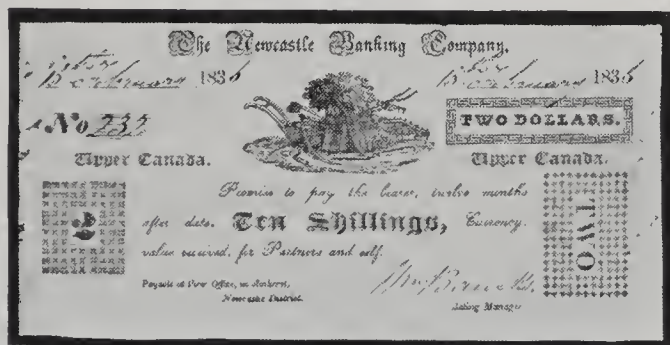 The Newcastle Banking Company.
February 1836 February 1836
No 233
TWO DOLLARS.
Upper Canada. Upper Canada.
Promise to pay the bearer, twelve months
2 after date, Ten Shillings, Currency. TWO
value received, for Partners and self.
Payable at Office, in Amherst,
Newcastle District.
Acting Manager